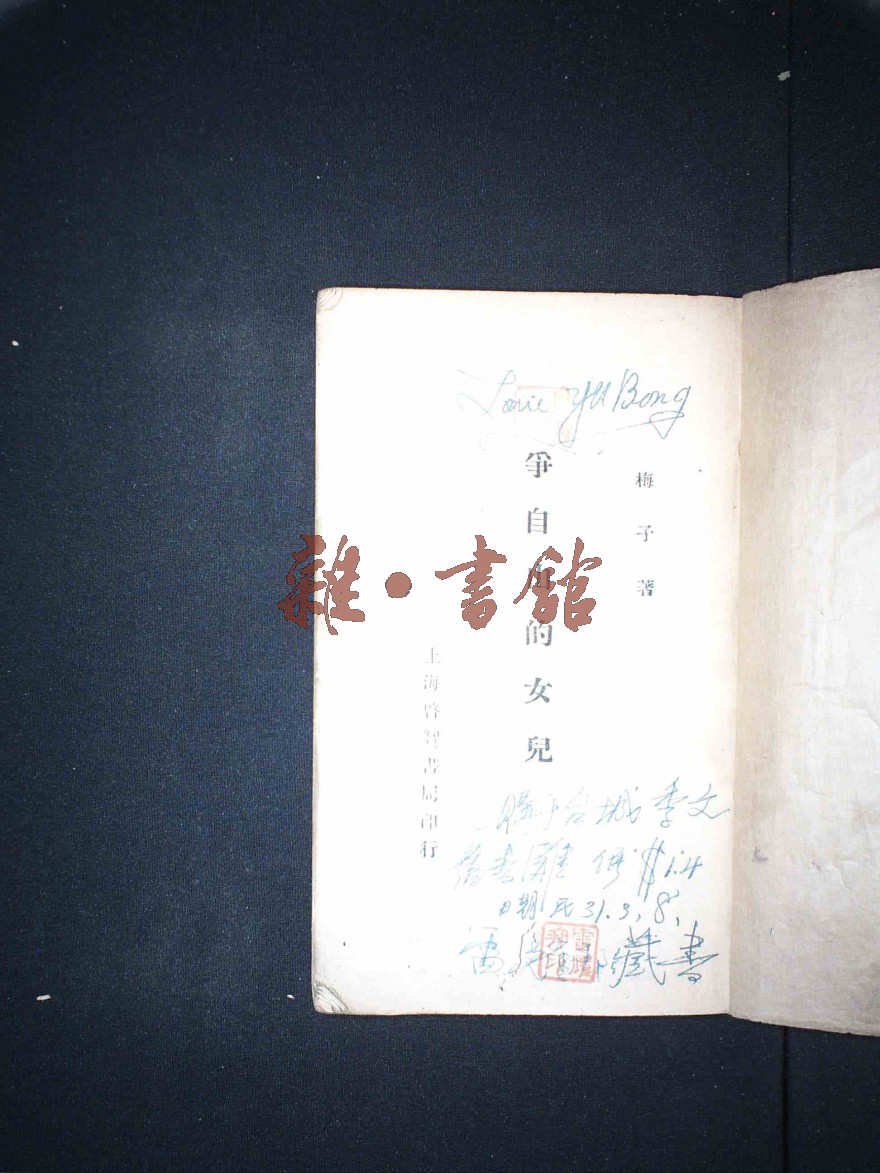 Louie Yu Bong
梅子著
爭自由的女兒
上海啓智書局印行
雜·書館
購于台城季文
舊書灘 價 $1.4
日期 民31.3.8.
雷 藏書